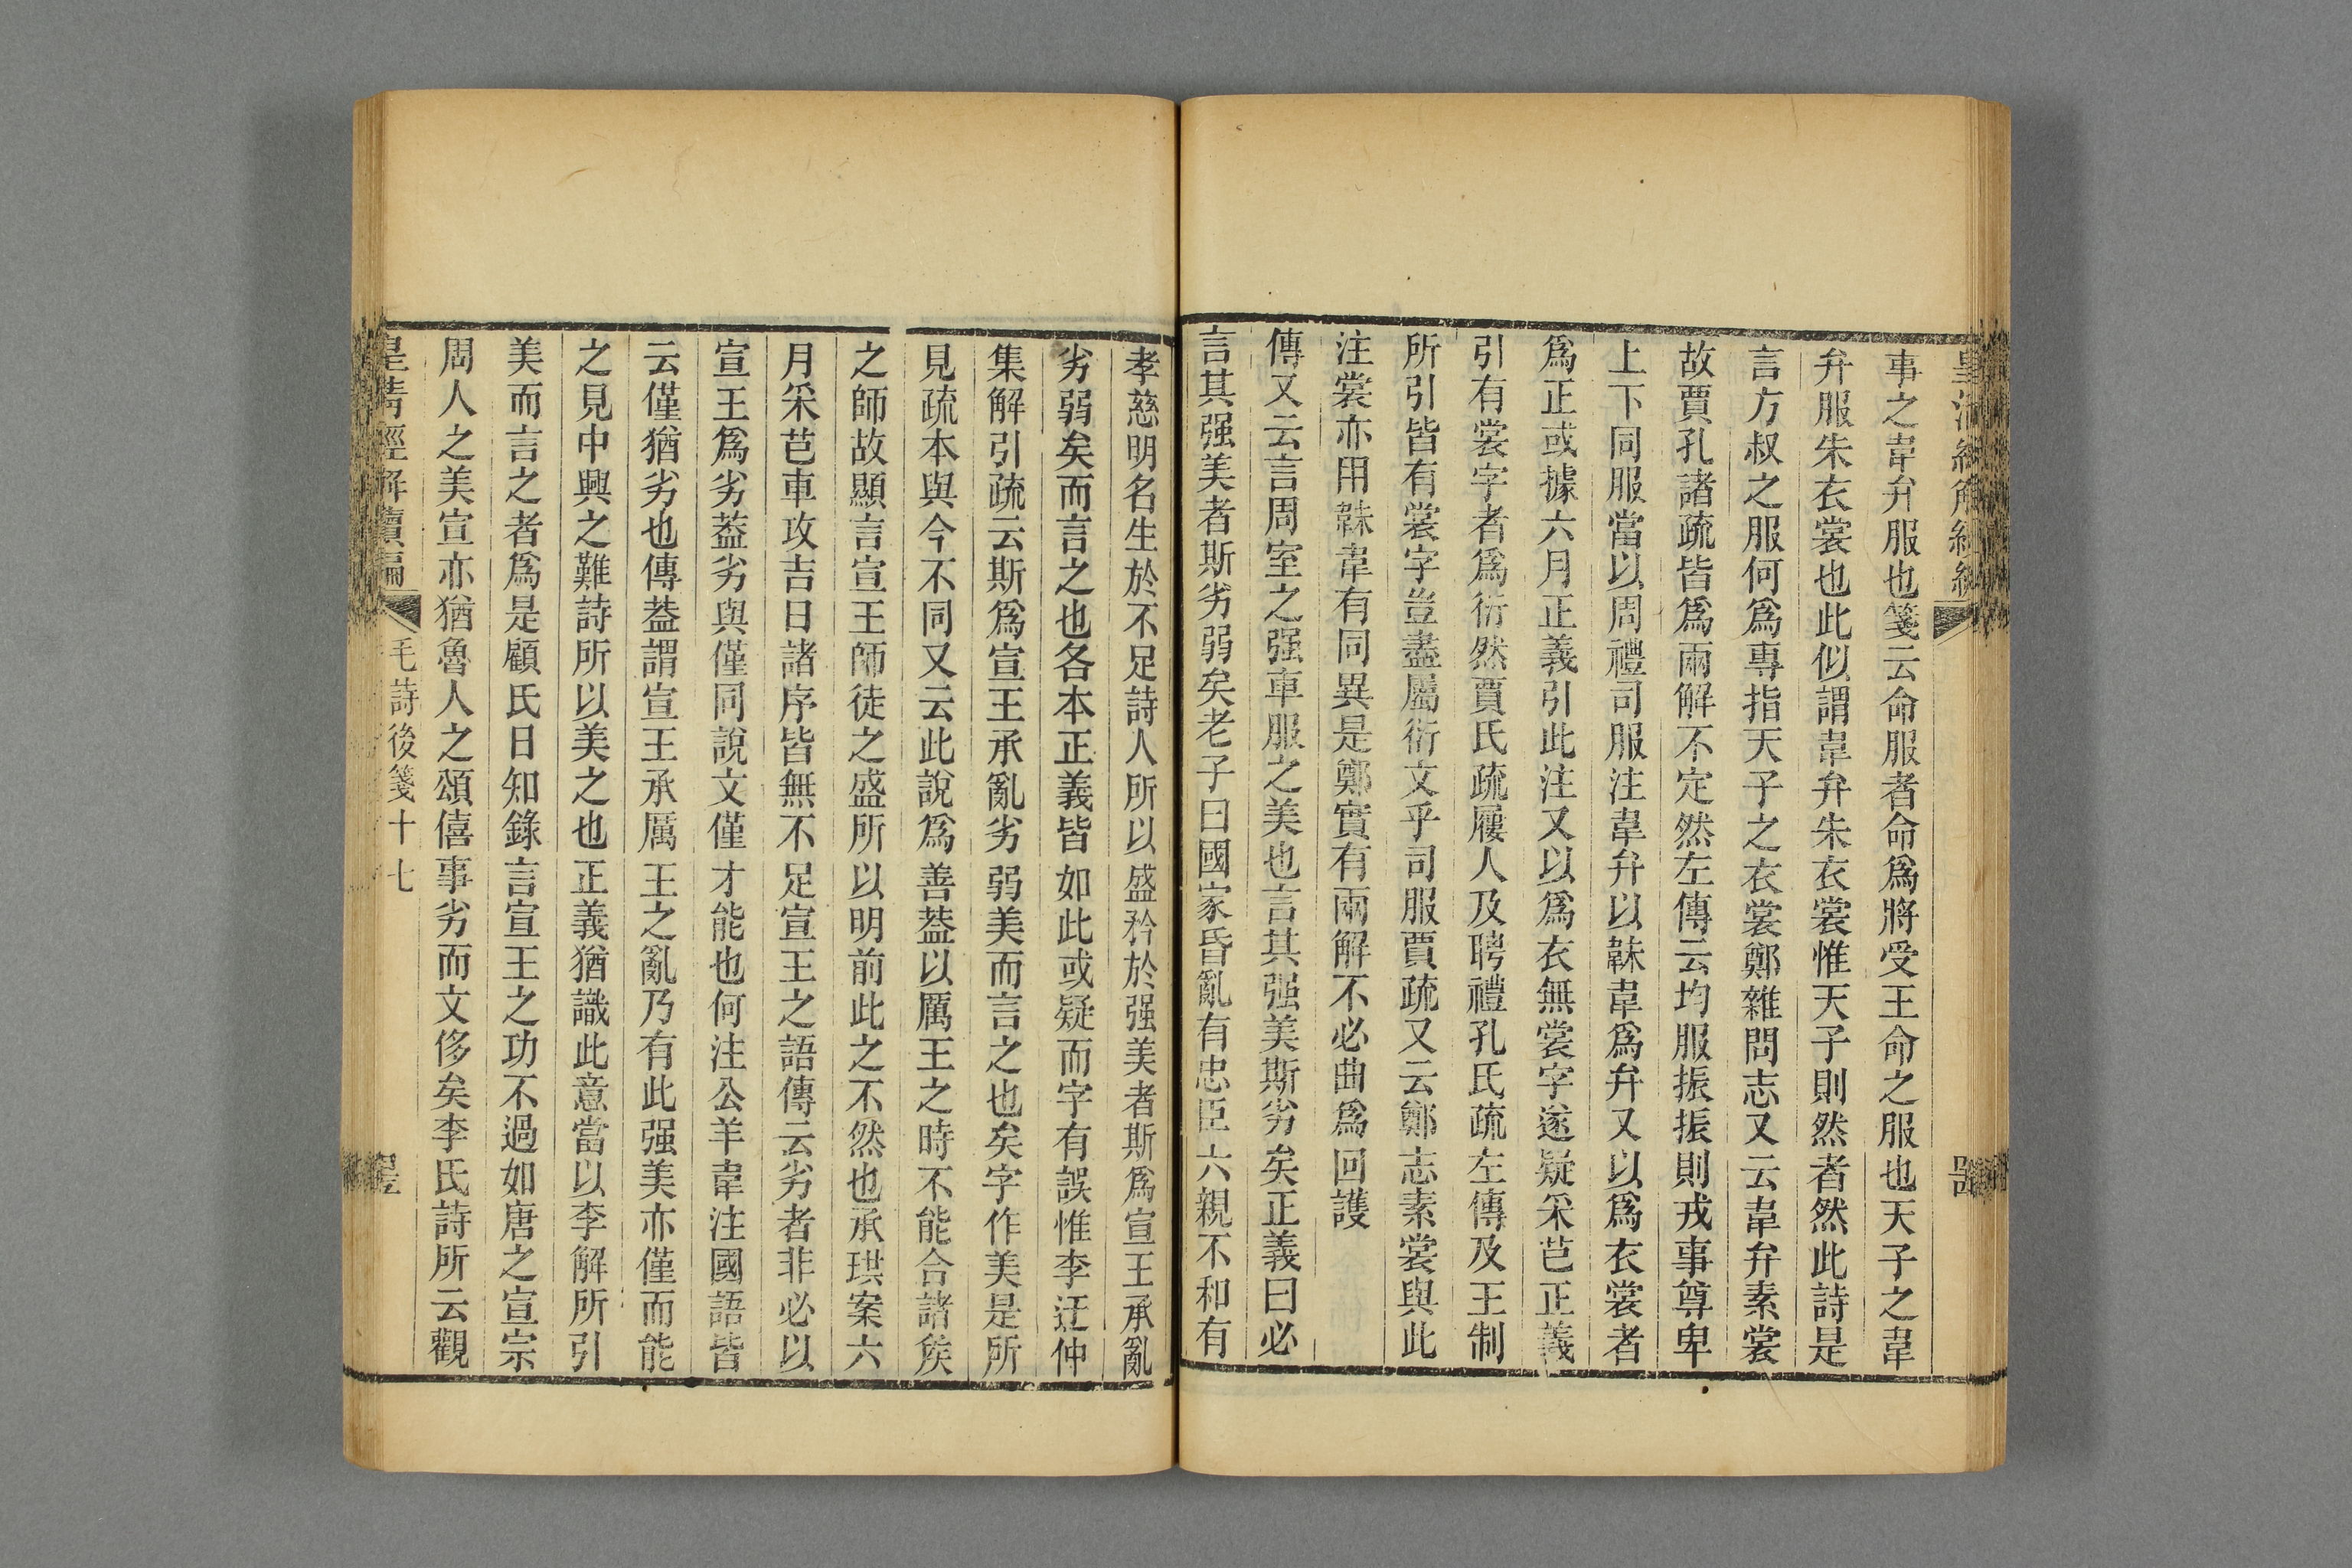 事之韋弁服也箋云命服者命爲將受王命之服也天子之韋
弁服朱衣裳也此似謂韋弁朱衣裳惟天子則然者然此詩是
言方叔之服何爲專指天子之衣裳鄭雜問志又云韋弁素裳
故賈孔諸疏皆爲兩解不定然左傳云均服振振則戎事尊卑
上下同服當以周禮司服注韋弁以韎韋爲弁又以爲衣裳者
爲正或據六月正義引此注又以爲衣無裳字遂疑采芑正義
引有裳字者爲衍然賈氏疏屨人及聘禮孔氏疏左傳及王制
所引皆有裳字豈盡屬衍文乎司服賈疏又云鄭志素裳與此
注裳亦用韎韋有同異是鄭實有兩解不必曲爲回護
傳又云言周室之强車服之美也言其强美斯劣矣正義曰必
言其强美者斯劣弱矣老子曰國家昏亂有忠臣六親不和有
孝慈明名生於不足詩人所以盛矜於强美者斯爲宣王承亂
劣弱矣而言之也各本正義皆如此或疑而字有誤惟李迂仲
集解引疏云斯爲宣王承亂劣弱美而言之也矣字作美是所
見疏本與今不同又云此說爲善葢以厲王之時不能合諸矦
之師故顯言宣王師徒之盛所以明前此之不然也承珙案六
月采芑車攻吉日諸序皆無不足宣王之語傳云劣者非必以
宣王爲劣葢劣與僅同說文僅才能也何注公羊韋注國語皆
云僅猶劣也傳葢謂宣王承厲王之亂乃有此强美亦僅而能
之見中興之難詩所以美之也正義猶識此意當以李解所引
美而言之者爲是顧氏日知錄言宣王之功不過如唐之宣宗
周人之美宣亦猶魯人之頌僖事劣而文侈矣李氏詩所云觀
皇清經解續編
毛詩後箋十七